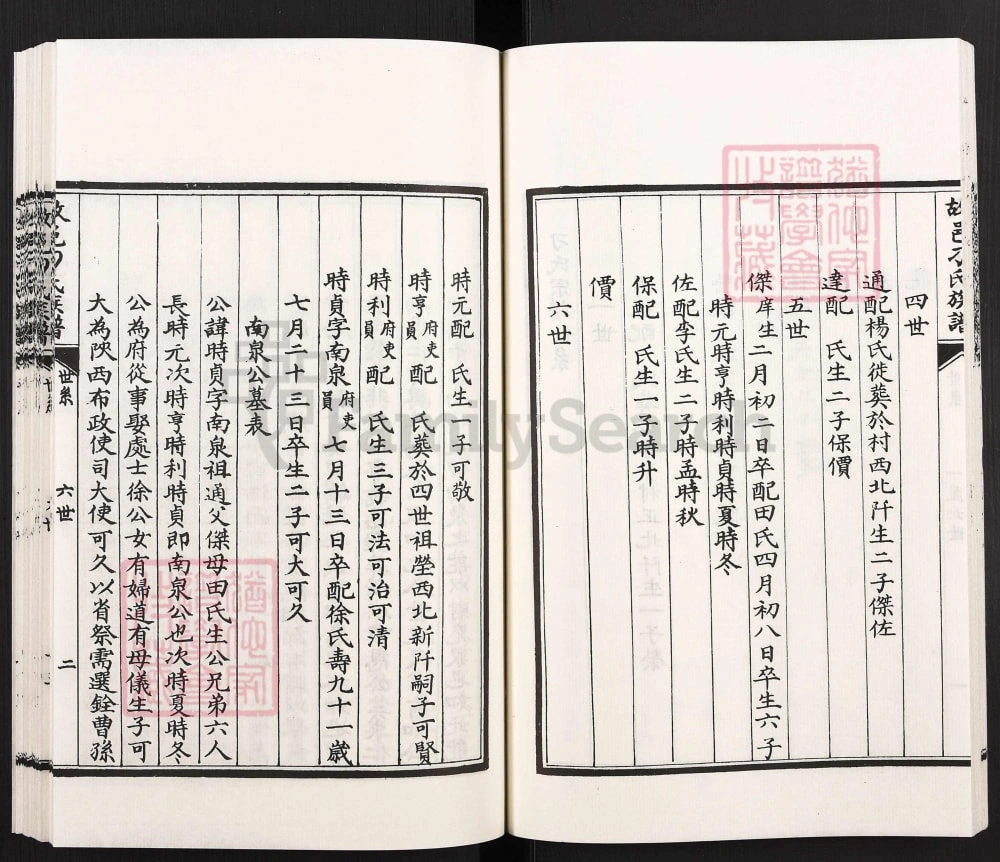 故邑刁氏族譜
四世
通配楊氏徙葬於村西北阡生二子傑佐
達配 氏生二子保價
五世
傑庠生二月初二日卒配田氏四月初八日卒生六子
時元時亨時利時貞時夏時冬
佐配李氏生二子時孟時秋
保配 氏生一子時升
價
六世
時元配 氏生一子可敬
時亨府吏員配 氏葬於四世祖塋西北新阡嗣子可賢
時利府吏員配 氏生三子可法可治可清
時貞字南泉府吏員七月十三日卒配徐氏壽九十一歲
七月二十三日卒生二子可大可久
南泉公墓表
公諱時貞字南泉祖通父傑母田氏生公兄弟六人
長時元次時亨時利時貞即南泉公也次時夏時冬
公為府從事娶處士徐公女有婦道有母儀生子可
大為陝西布政使司大使可久以省祭需選銓曹孫
世系
六世
二
FamilySearch